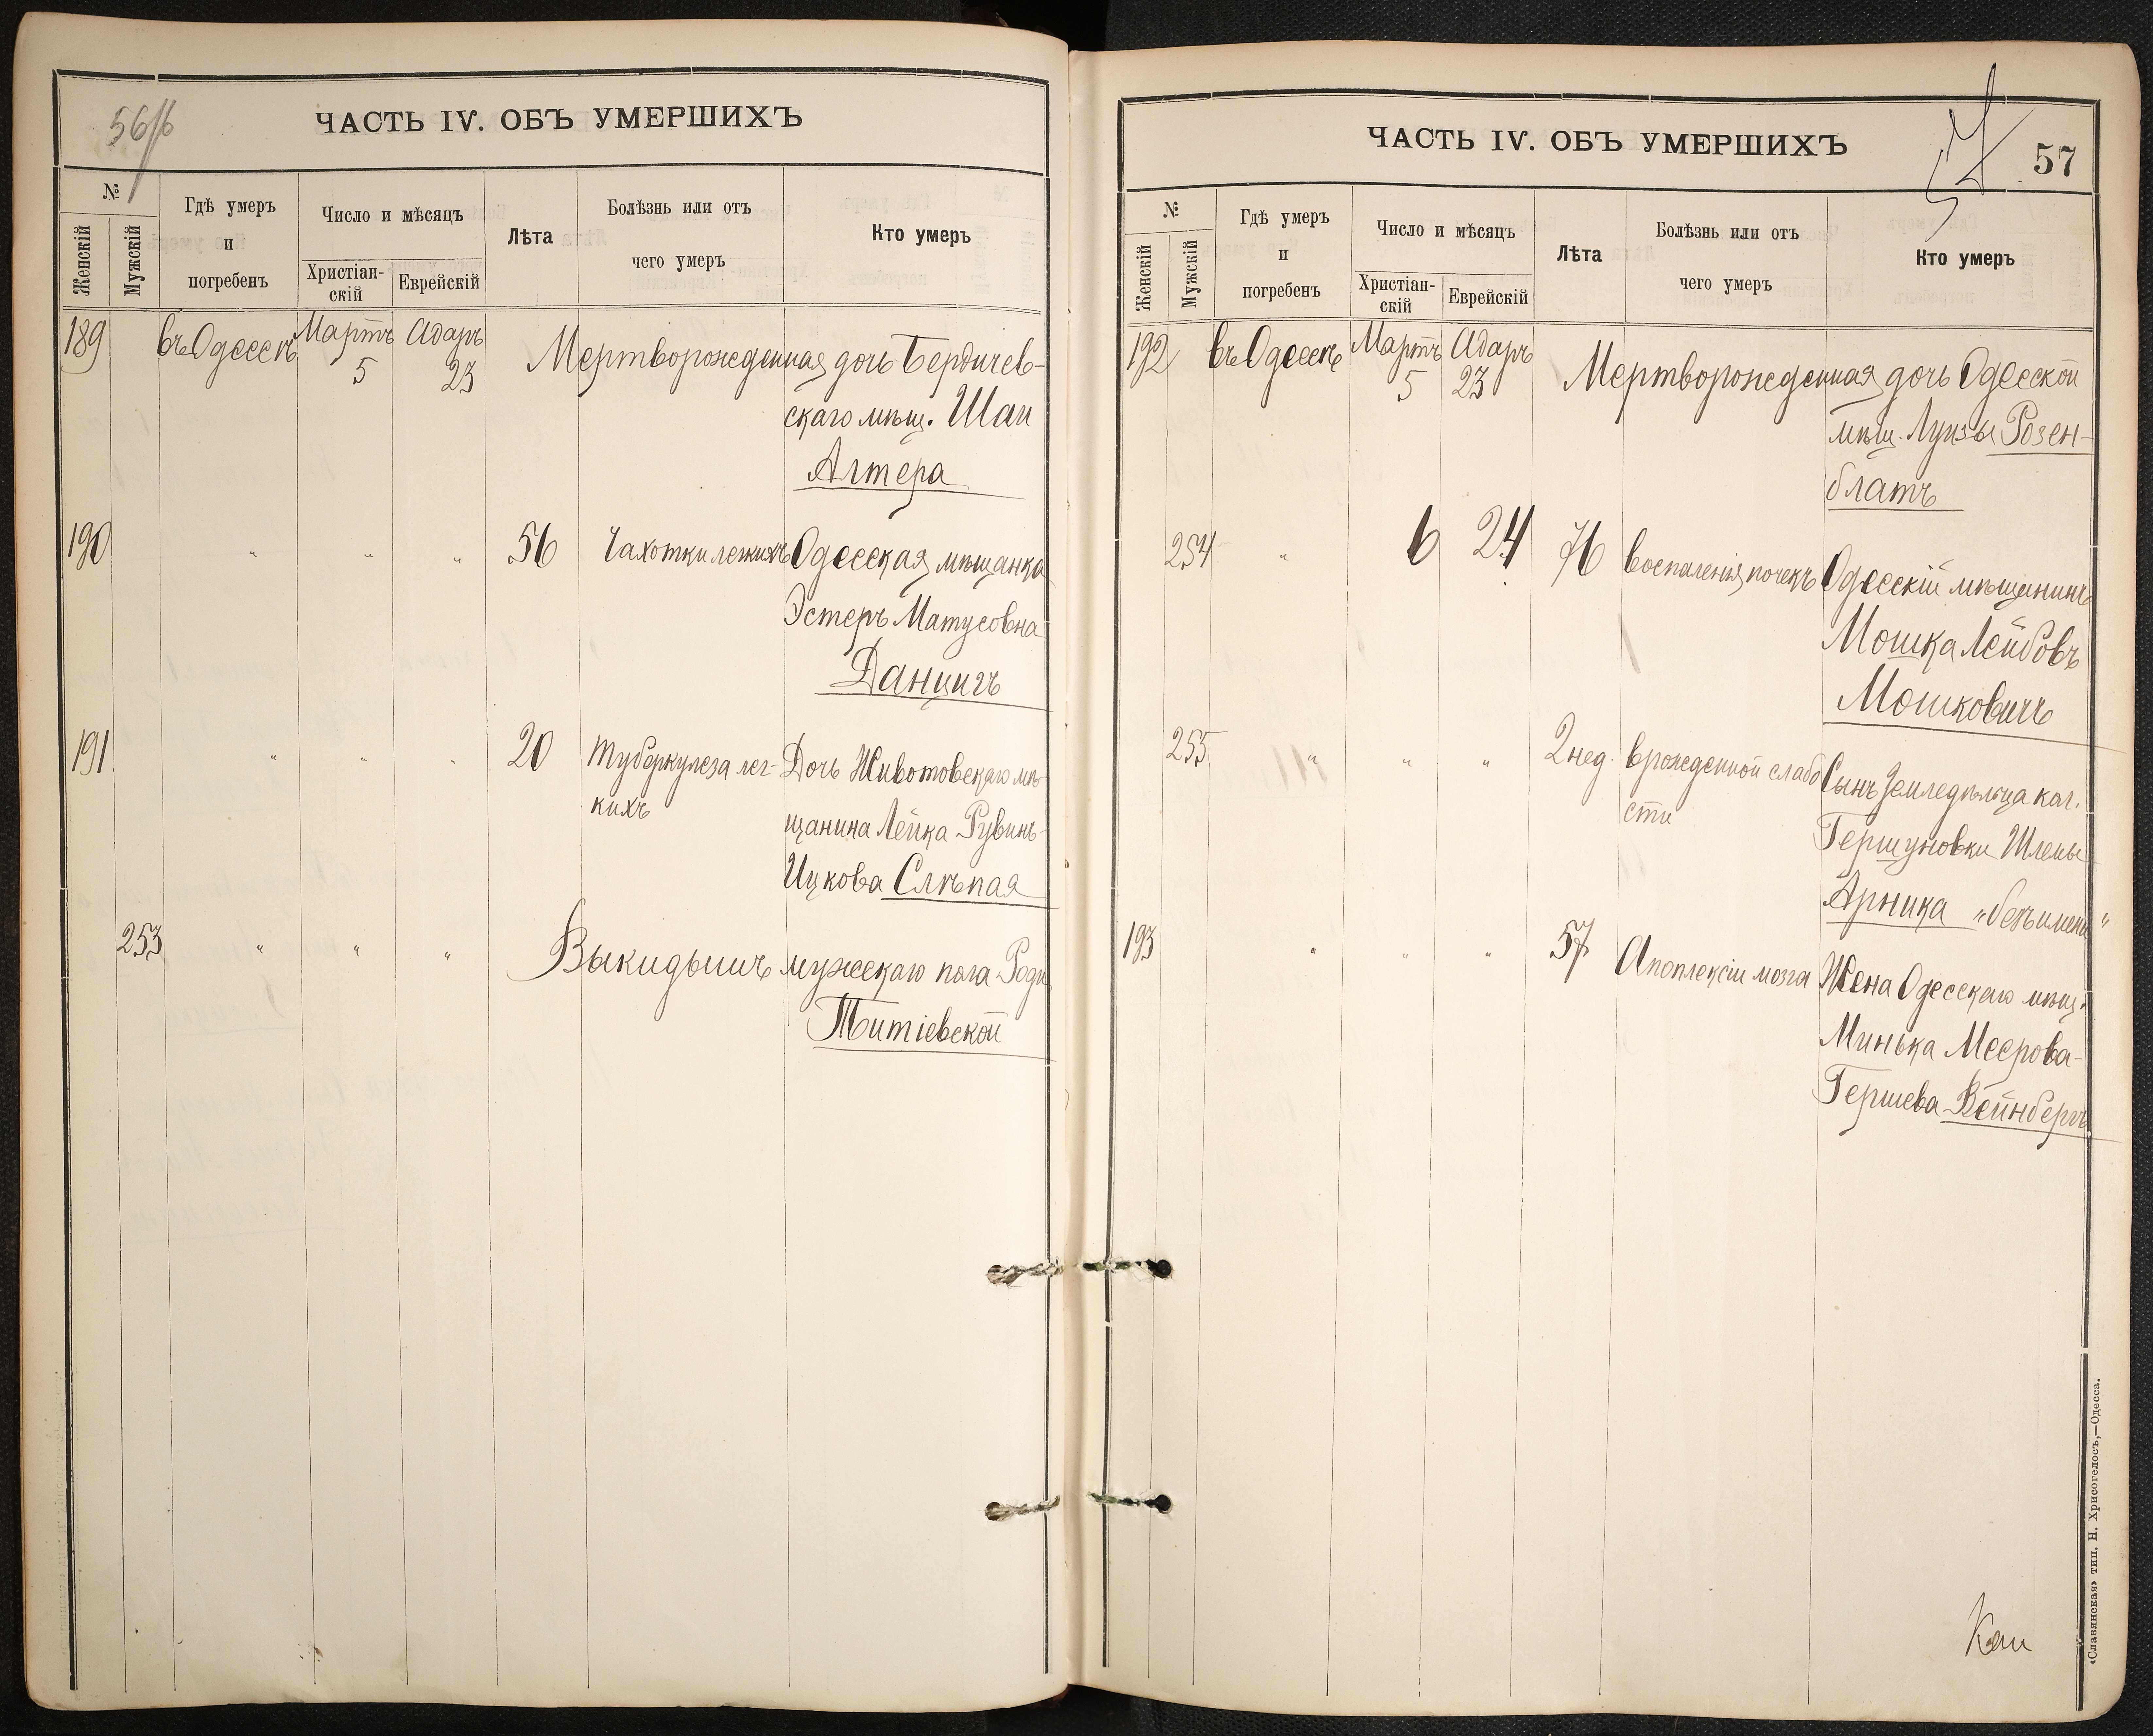 56/б
ЧАСТЬ IV. ОБЪ УМЕРШИХЪ
№
Женскій
Мужскій
Гдѣ умеръ
и
погребенъ
Число и мѣсяцъ
Христіан-
скій
Еврейскій
Лѣта
Болѣзнь или отъ
чего умеръ
Кто умеръ
189 въ Одессѣ Мартъ Адаръ
5 23
Мертворожденная дочь Бердичев-
скаго мѣщ. Шаи
Алтера
190 " " " 56 Чахотки легкихъ Одесская мѣщанка
Эстеръ Матусовна
Данцигъ
191 " " " 20 Туберкулеза лег- Дочь Животовскаго мѣ-
кихъ
щанина Лейка Рувинъ-
Ицкова Слѣпая
253 " " " Выкидышъ мужскаго пола
Титіевской
ЧАСТЬ IV. ОБЪ УМЕРШИХЪ
57
57
№
Женскій
Мужскій
Гдѣ умеръ
и
погребенъ
Число и мѣсяцъ
Христіан-
скій
Еврейскій
Лѣта
Болѣзнь или отъ
чего умеръ
Кто умеръ
192 въ Одессѣ Мартъ Адаръ
5 23
Мертворожденная дочь Одесской
мѣщ. Луизы Розен-
блатъ
254 " 6 24 76 воспаленія почекъ Одесскій мѣщанинъ
Мошка Лейбовъ
Мошковичъ
255 " " " 2 нед. врожденной слабо Сынъ земледѣльца кол.
сти
Гершуновки Шлемы
Арника "безъ имени"
193 " " " 57 Апоплексіи мозга Жена Одесскаго мѣщ.
Минька Меерова-
Гершева Вейнбергъ
«Славянская» тип. Н. Хрисогелосъ,—Одесса.